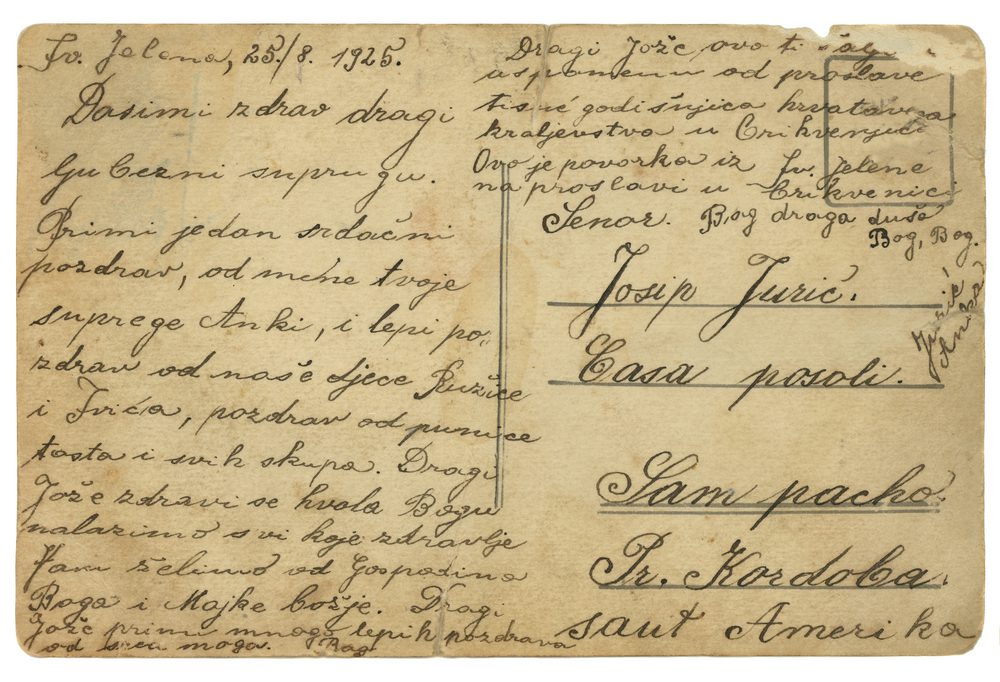 Sv. Jelena, 25./8. 1925.
Dasimi zdrav dragi
ljubezni suprugu.
Primi jedan srdačni
pozdrav, od mene tvoje
suprege Anki, i lepi po-
zdrav od naše djece Ružice
i Ivića, pozdrav od punice
tasta i svih skupa. Dragi
Jože zdravi se hvala Bogu
nalazimo svi koje zdravlje
Vam želimo od Gospodina
Boga i Majke božje. Dragi
Jože primi mnogo lepih pozdrava
od srca moga. Bog
Dragi Jože ovo ti šalj
uspomenu od proslave
tisuć godišnjica hrvatav
kraljevstva u Crikvenjici
Ovo je povorka iz Sv. Jelene
na proslavi u Crikvenici
Bog draga dušo
Bog, Bog.
Jurić
Anka
Senor.
Josip Jurić.
Casa posoli.
Sam pacho.
Pr. Kordoba.
saut Amerika